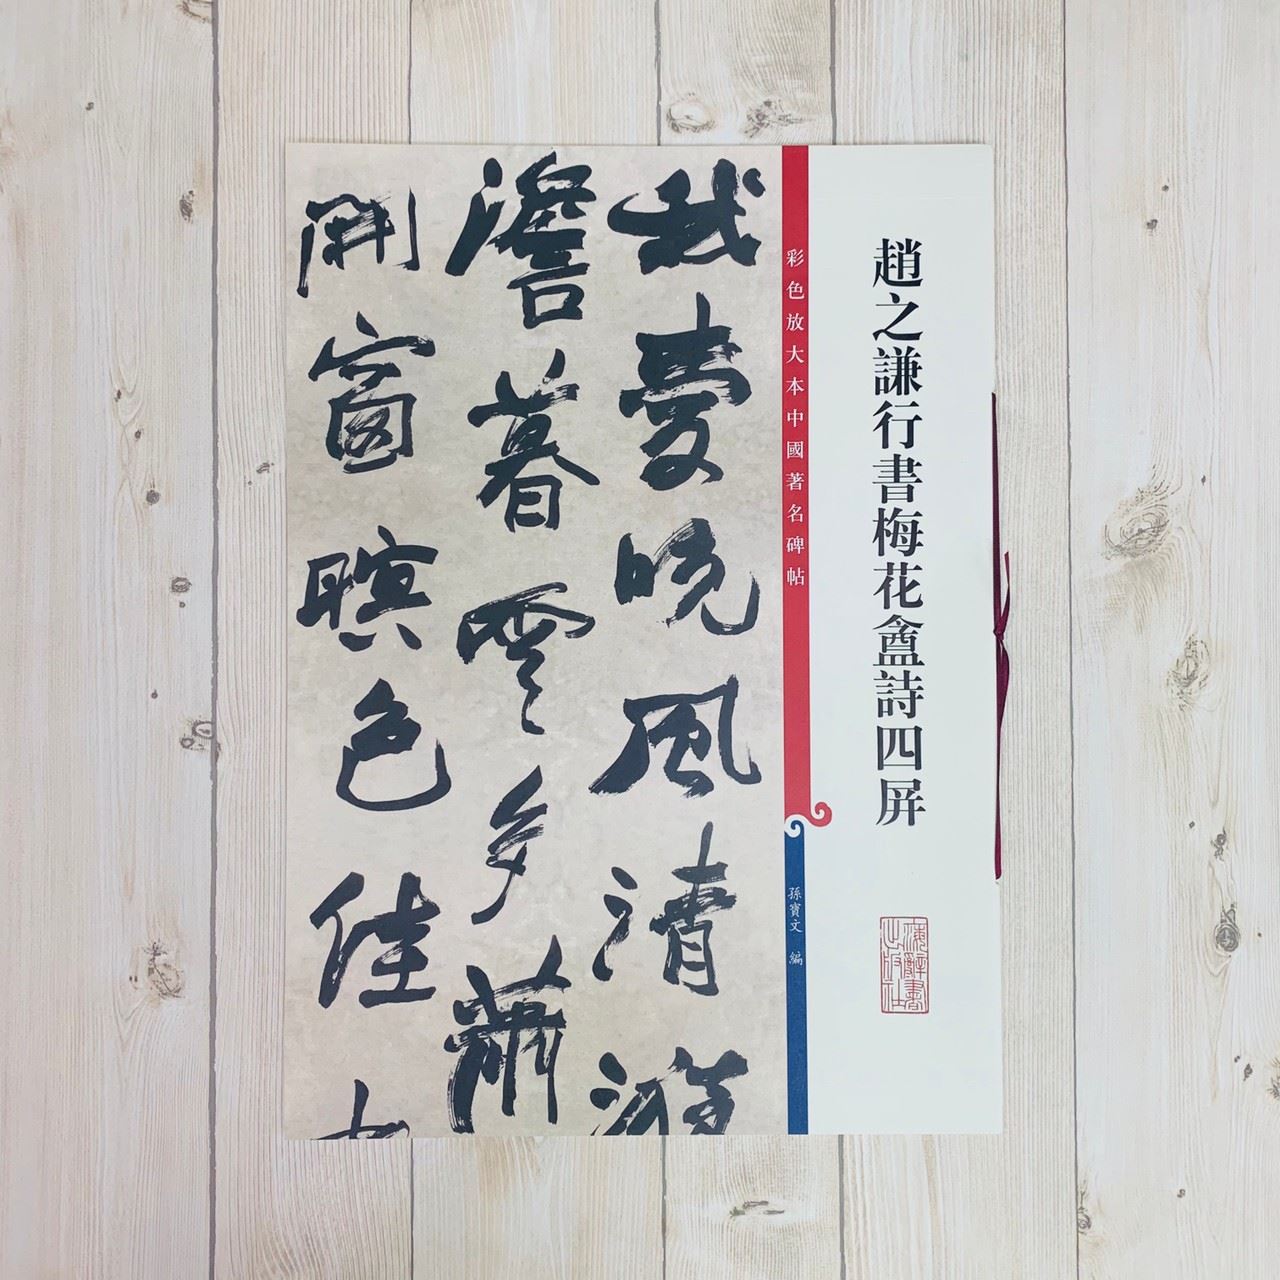 趙之謙行書梅花盦詩四屏
上海辭書
出版社
彩色放大本中國著名碑帖
孫寶文 編
我愛晚風清
澹暮雲多蕭
開窗暝色佳